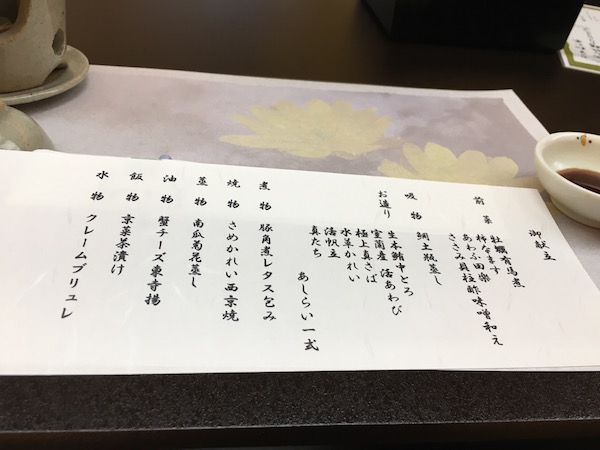 御献立
前菜 牡蠣有馬煮
柿なます
あわふ田楽
ささみ貝柱酢味噌和え
吸物 鯛土瓶蒸し
お造り 生本鮪中とろ
室蘭産 活あわび
極上真さば
水草かれい
活帆立
真たち
あしらい一式
煮物 豚角煮レタス包み
焼物 さめかれい西京焼
蒸物 南瓜菊花蒸し
油物 蟹チーズ東寺揚
飯物 京菜茶漬け
水物 クレームブリュレ